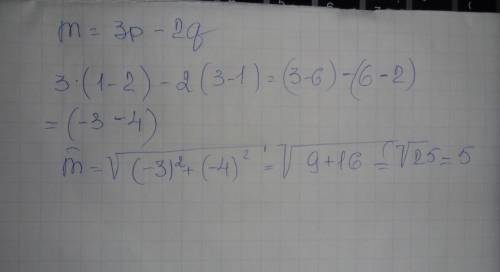 m = 3p - 2q
3·(1-2) - 2(3-1) = (3-6) - (6-2)
= (-3 -4)
m̄ = √(-3)² + (-4)² = √9+16 = √25 = 5